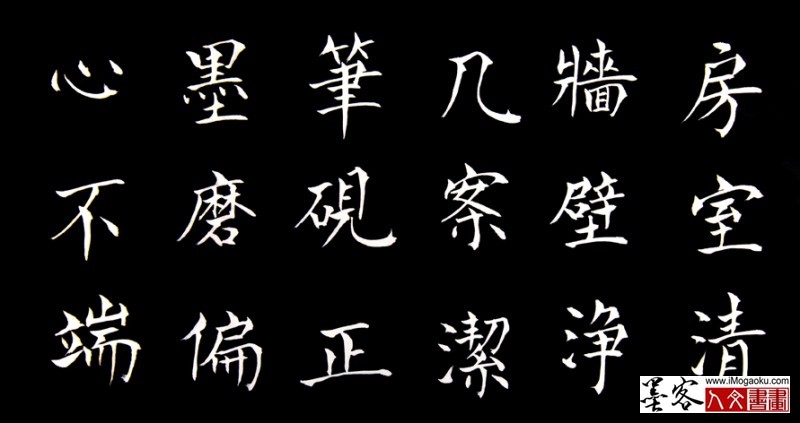 房室清
牆壁净
几案潔
筆硯正
墨磨偏
心不端
墨客
www.iMogaoku.com
人文書畫